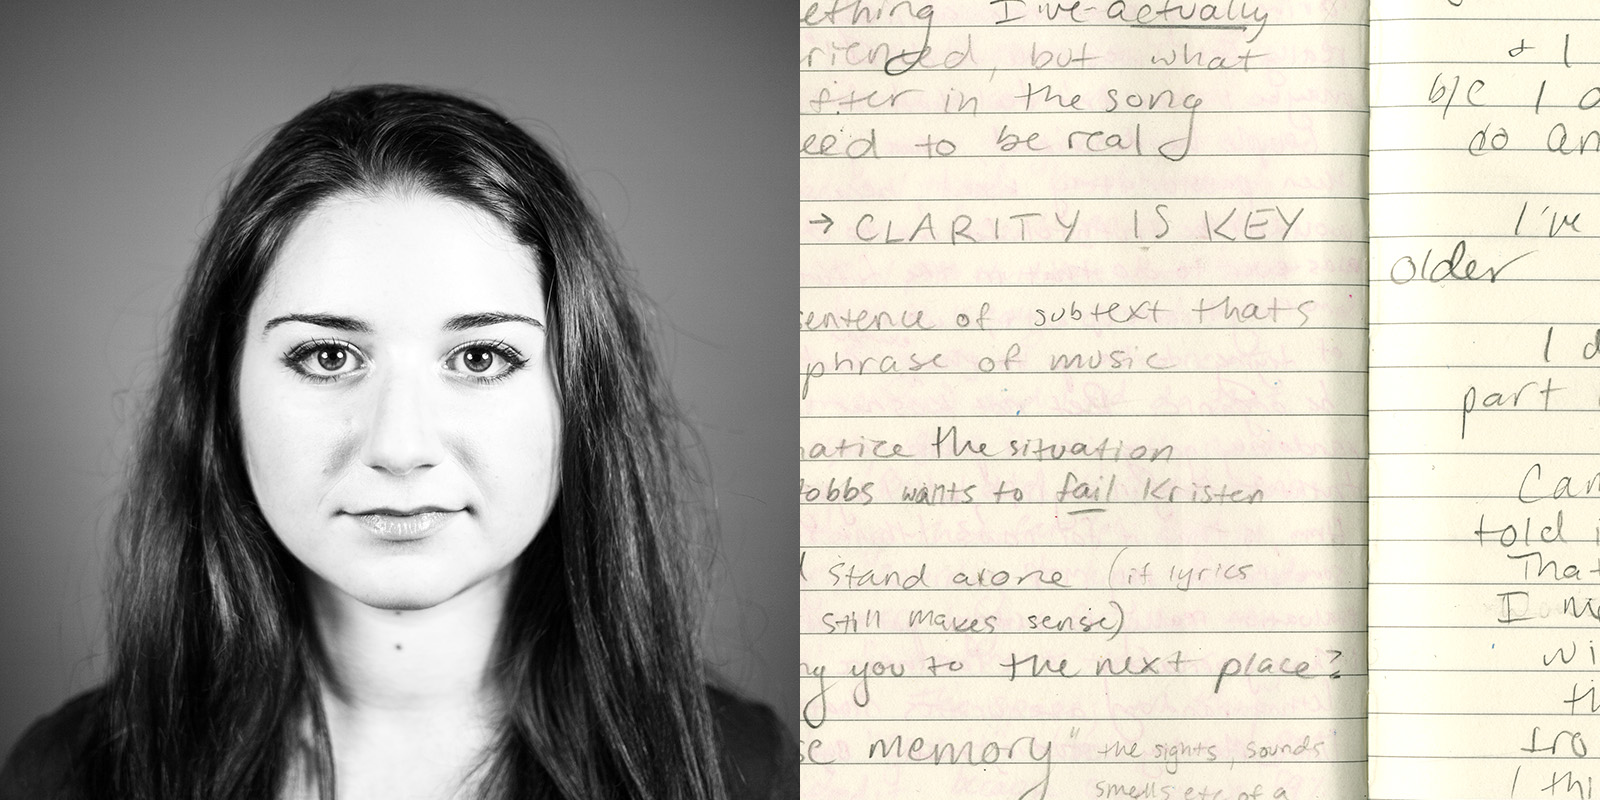 ething I've actually
riented, but what
after in the song
eed to be real
→ CLARITY IS KEY
sentence of subtext thats
phrase of music
matize the situation
tobbs wants to fail Kristen
stand alone (if lyrics
still makes sense)
ng you to the next place?
se memory" the sights, sounds
smells etc of a
& I
b/c I a
do an
I've
older
I d
part
Can
told i
That
I me
wi
th
fro
I thi